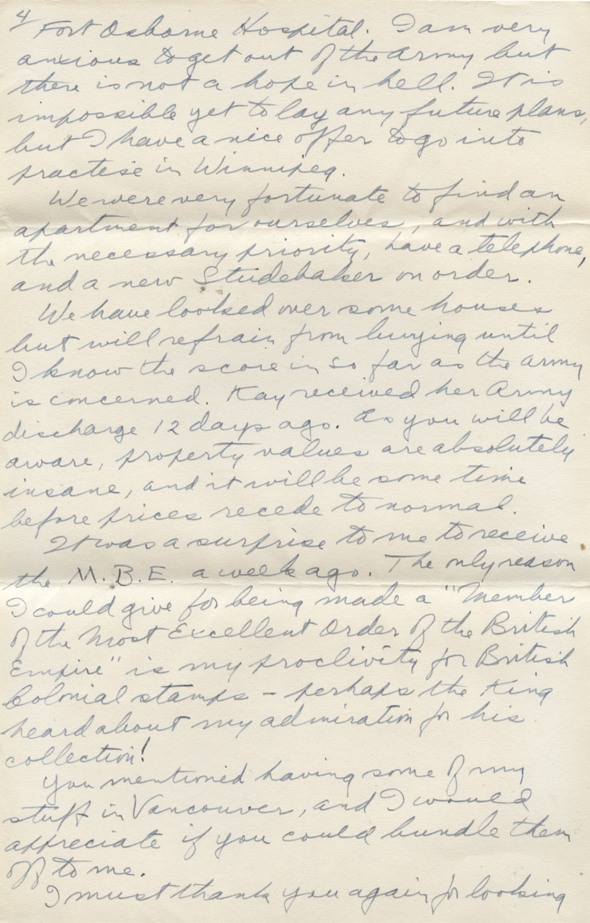 4
Fort Osborne Hospital. I am very
anxious to get out of the Army but
there is not a hope in hell. It is
impossible yet to lay any future plans,
but I have a nice offer to go into
practise in Winnipeg.
We were very fortunate to find an
apartment for ourselves, and with
the necessary priority, have a telephone,
and a new Studebaker on order.
We have looked over some houses
but will refrain from buying until
I know the score in so far as the army
is concerned. Kay received her Army
discharge 12 days ago. As you will be
aware, property values are absolutely
insane, and it will be some time
before prices recede to normal.
It was a surprise to me to receive
the M.B.E. a week ago. The only reason
I could give for being made a "Member
of the Most Excellent Order of the British
Empire" is my proclivity for British
Colonial stamps - perhaps the King
heard about my admiration for his
collection!
You mentioned having some of my
stuff in Vancouver, and I would
appreciate if you could bundle them
off to me.
I must thank you again for looking